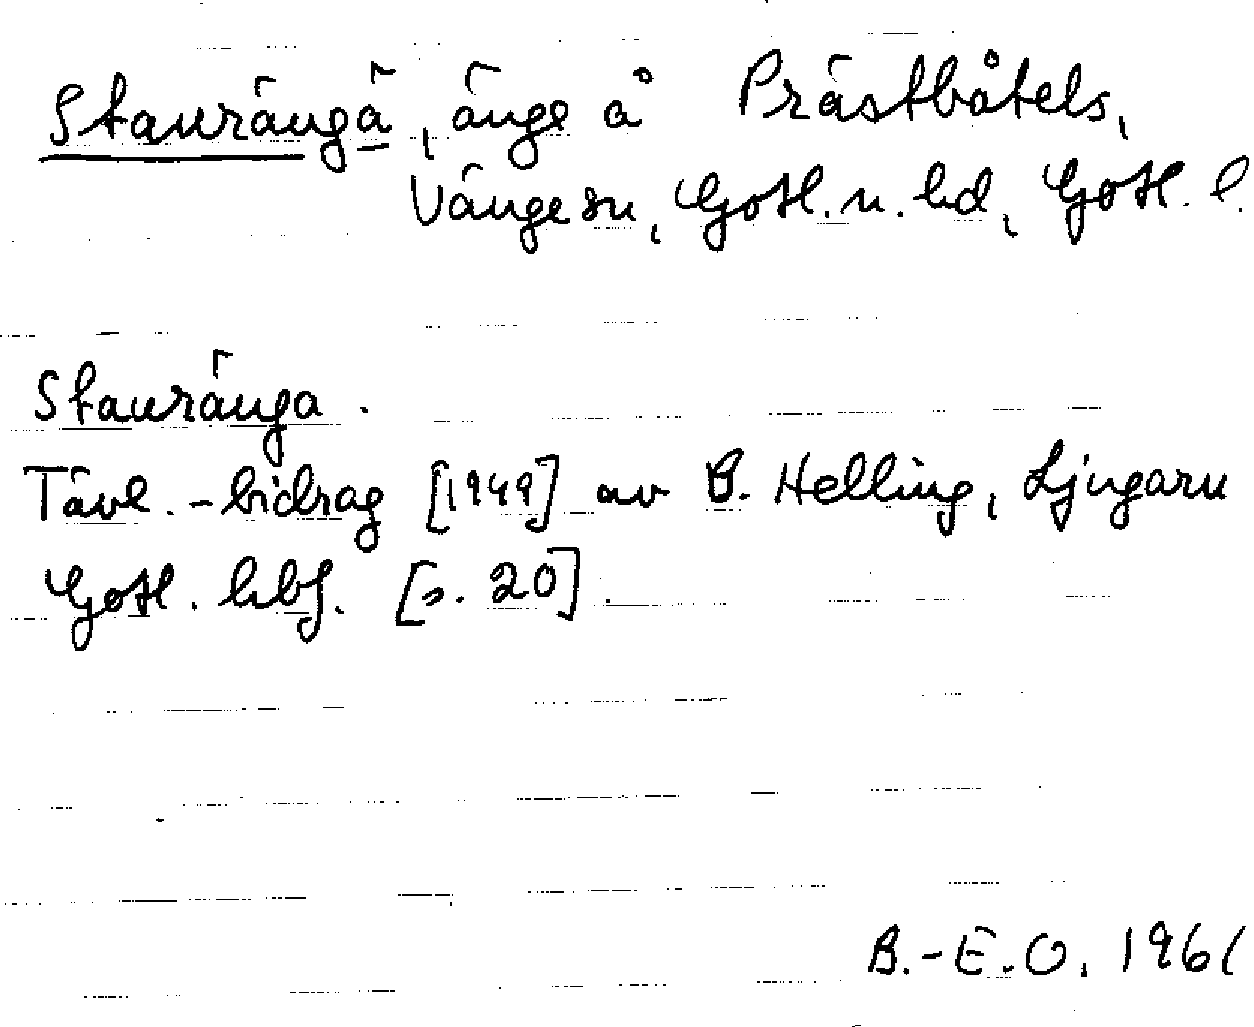 Staurängä, änge å Prästbåtels,
Vänge sn, Gotl. n. hd, Gotl. l.
Stauränga.
Tävl.-bidrag [1949] av B. Helling, Ljugarn
Gotl. hbf. [s. 20].
B.-E.O. 1961